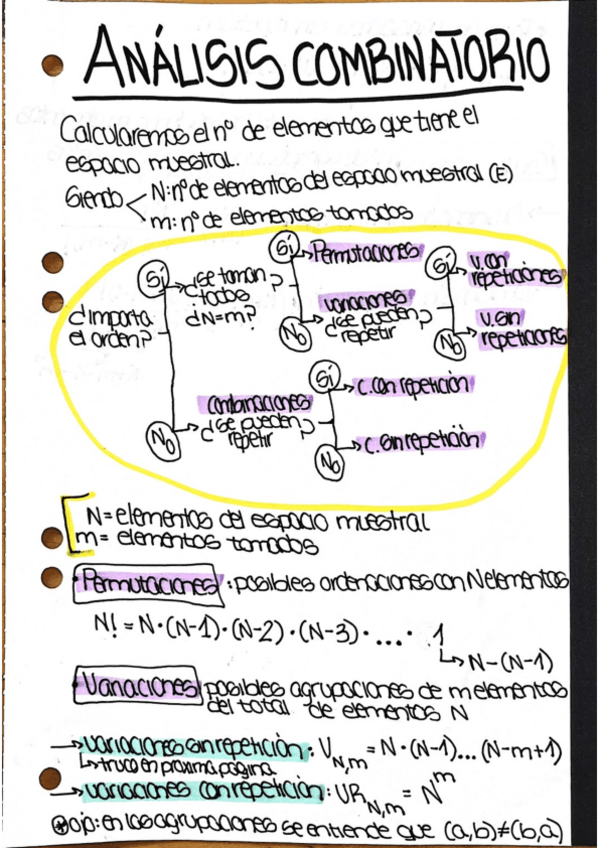 ANÁLISIS COMBINATORIO
Calcularemos el nº de elementos que tiene el
espacio muestral.
Siendo
N: nº de elementos del espacio muestral (E)
m: nº de elementos tomados
¿importa
el orden?
Sí
¿se toman
todos
¿N=m?
Sí
Permutaciones
No
variaciones
¿se pueden
repetir?
Sí
V. con
repeticiones
No
V. sin
repeticiones
No
combinaciones
¿se pueden
repetir?
Sí
C. con repetición
No
C. sin repetición
N = elementos del espacio muestral
m = elementos tomados
· Permutaciones : posibles ordenaciones con N elementos
N! = N·(N-1)·(N-2)·(N-3)·...· 1
↳ N-(N-1)
· Variaciones posibles agrupaciones de m elementos
del total de elementos N
→ variaciones sin repetición: V_N,m = N·(N-1)...(N-m+1)
↳ truco en próxima página
→ variaciones con repetición: VR_N,m = N^m
* ojo: en las agrupaciones se entiende que (a,b)≠(b,a)